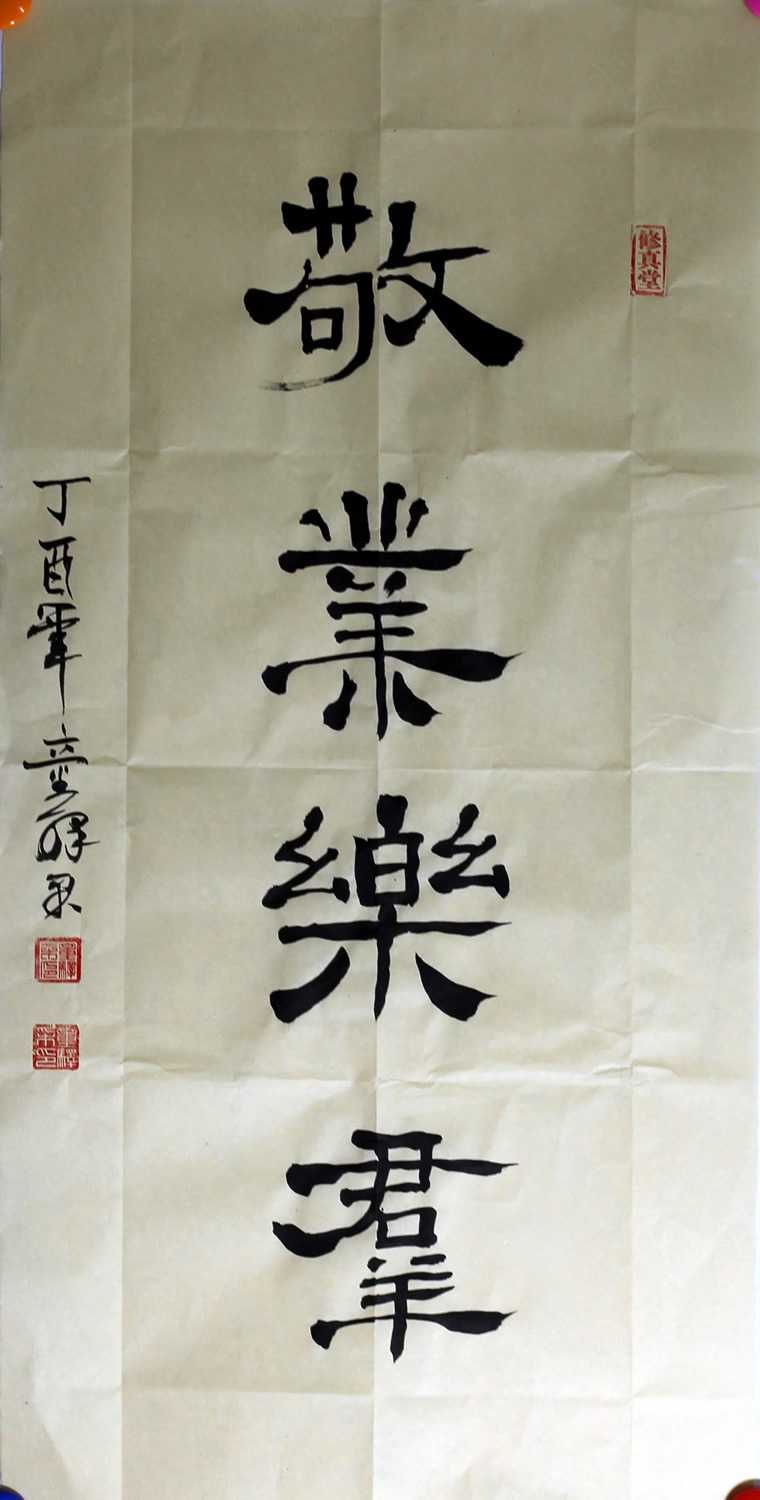 修真堂
敬業樂羣
丁酉年童釋